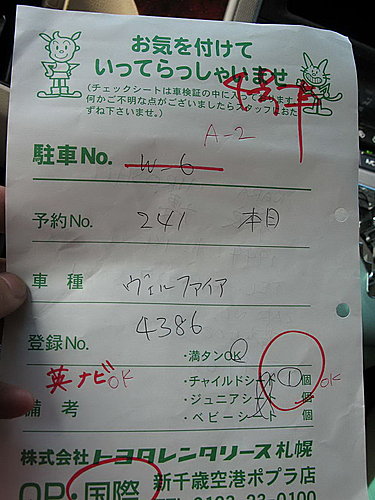 お気を付けて
いってらっしゃいませ
(チェックシートは車検証の中に入って
何かご不明な点がございましたらスタッフ
ずね下さいませ。)
A-2
駐車No. W-6
予約No. 241 本日
車種 ヴェルファイア
登録No. 4386
・満タンOK
英ナビOK ・チャイルドシート 1 個 OK
備考 ・ジュニアシート 個
・ベビーシート 個
株式会社トヨタレンタリース札幌
OP・国際 新千歳空港ポプラ店